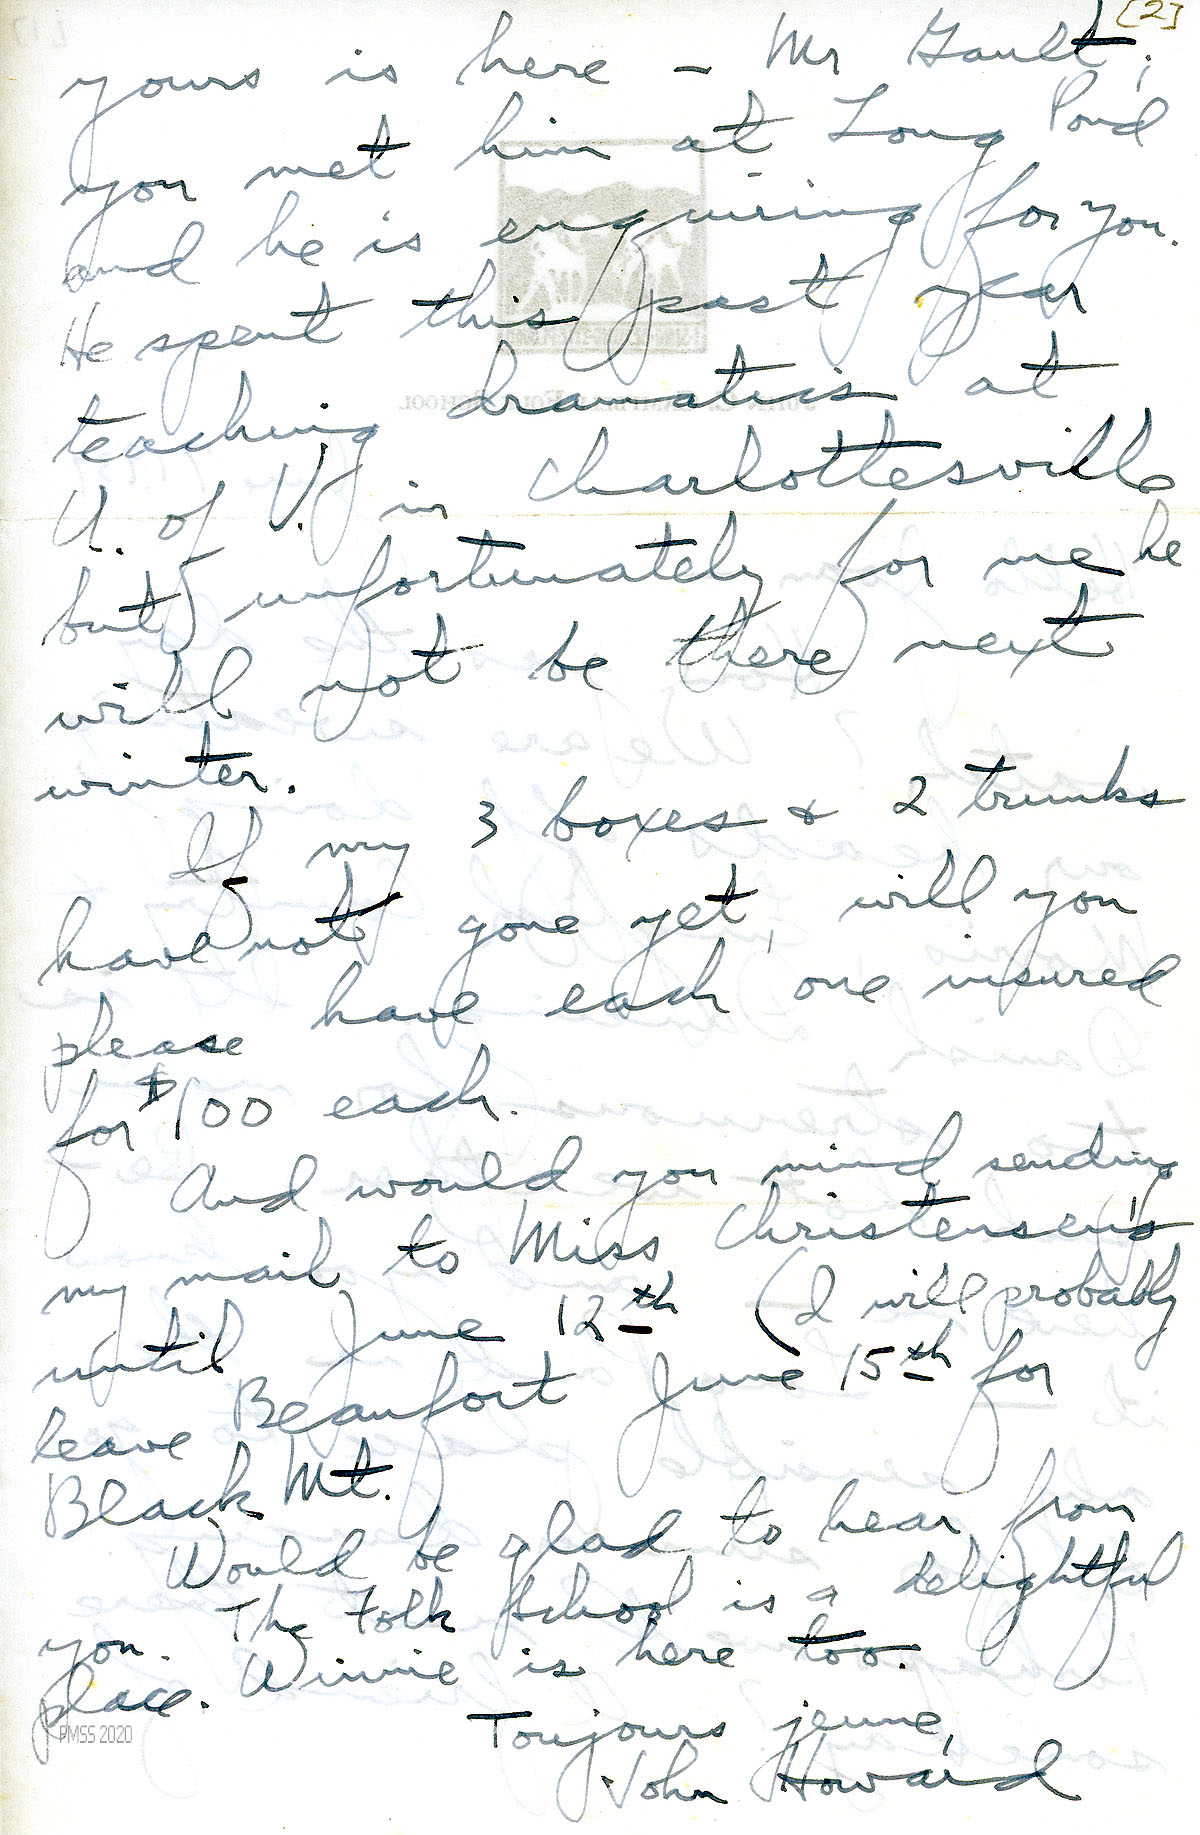 [2]
yours is here - Mr Gault;
you met him at Long Pond
and he is enquiring for you.
He spent this past year
teaching dramatics at
U. of V. in Charlottesville
but unfortunately for me he
will not be there next
winter.
If my 3 boxes & 2 trunks
have not gone yet, will you
please have each one insured
for $100 each.
And would you mind sending
my mail to Miss Christensen's
until June 12th (I will probably
leave Beaufort June 15th for
Black Mt.
Would be glad to hear from
you. The Folk School is a delightful
place. Winnie is here too.
Toujours jeune,
John Howard
PMSS 2020
JOHN C. CAMPBELL FOLK SCHOOL